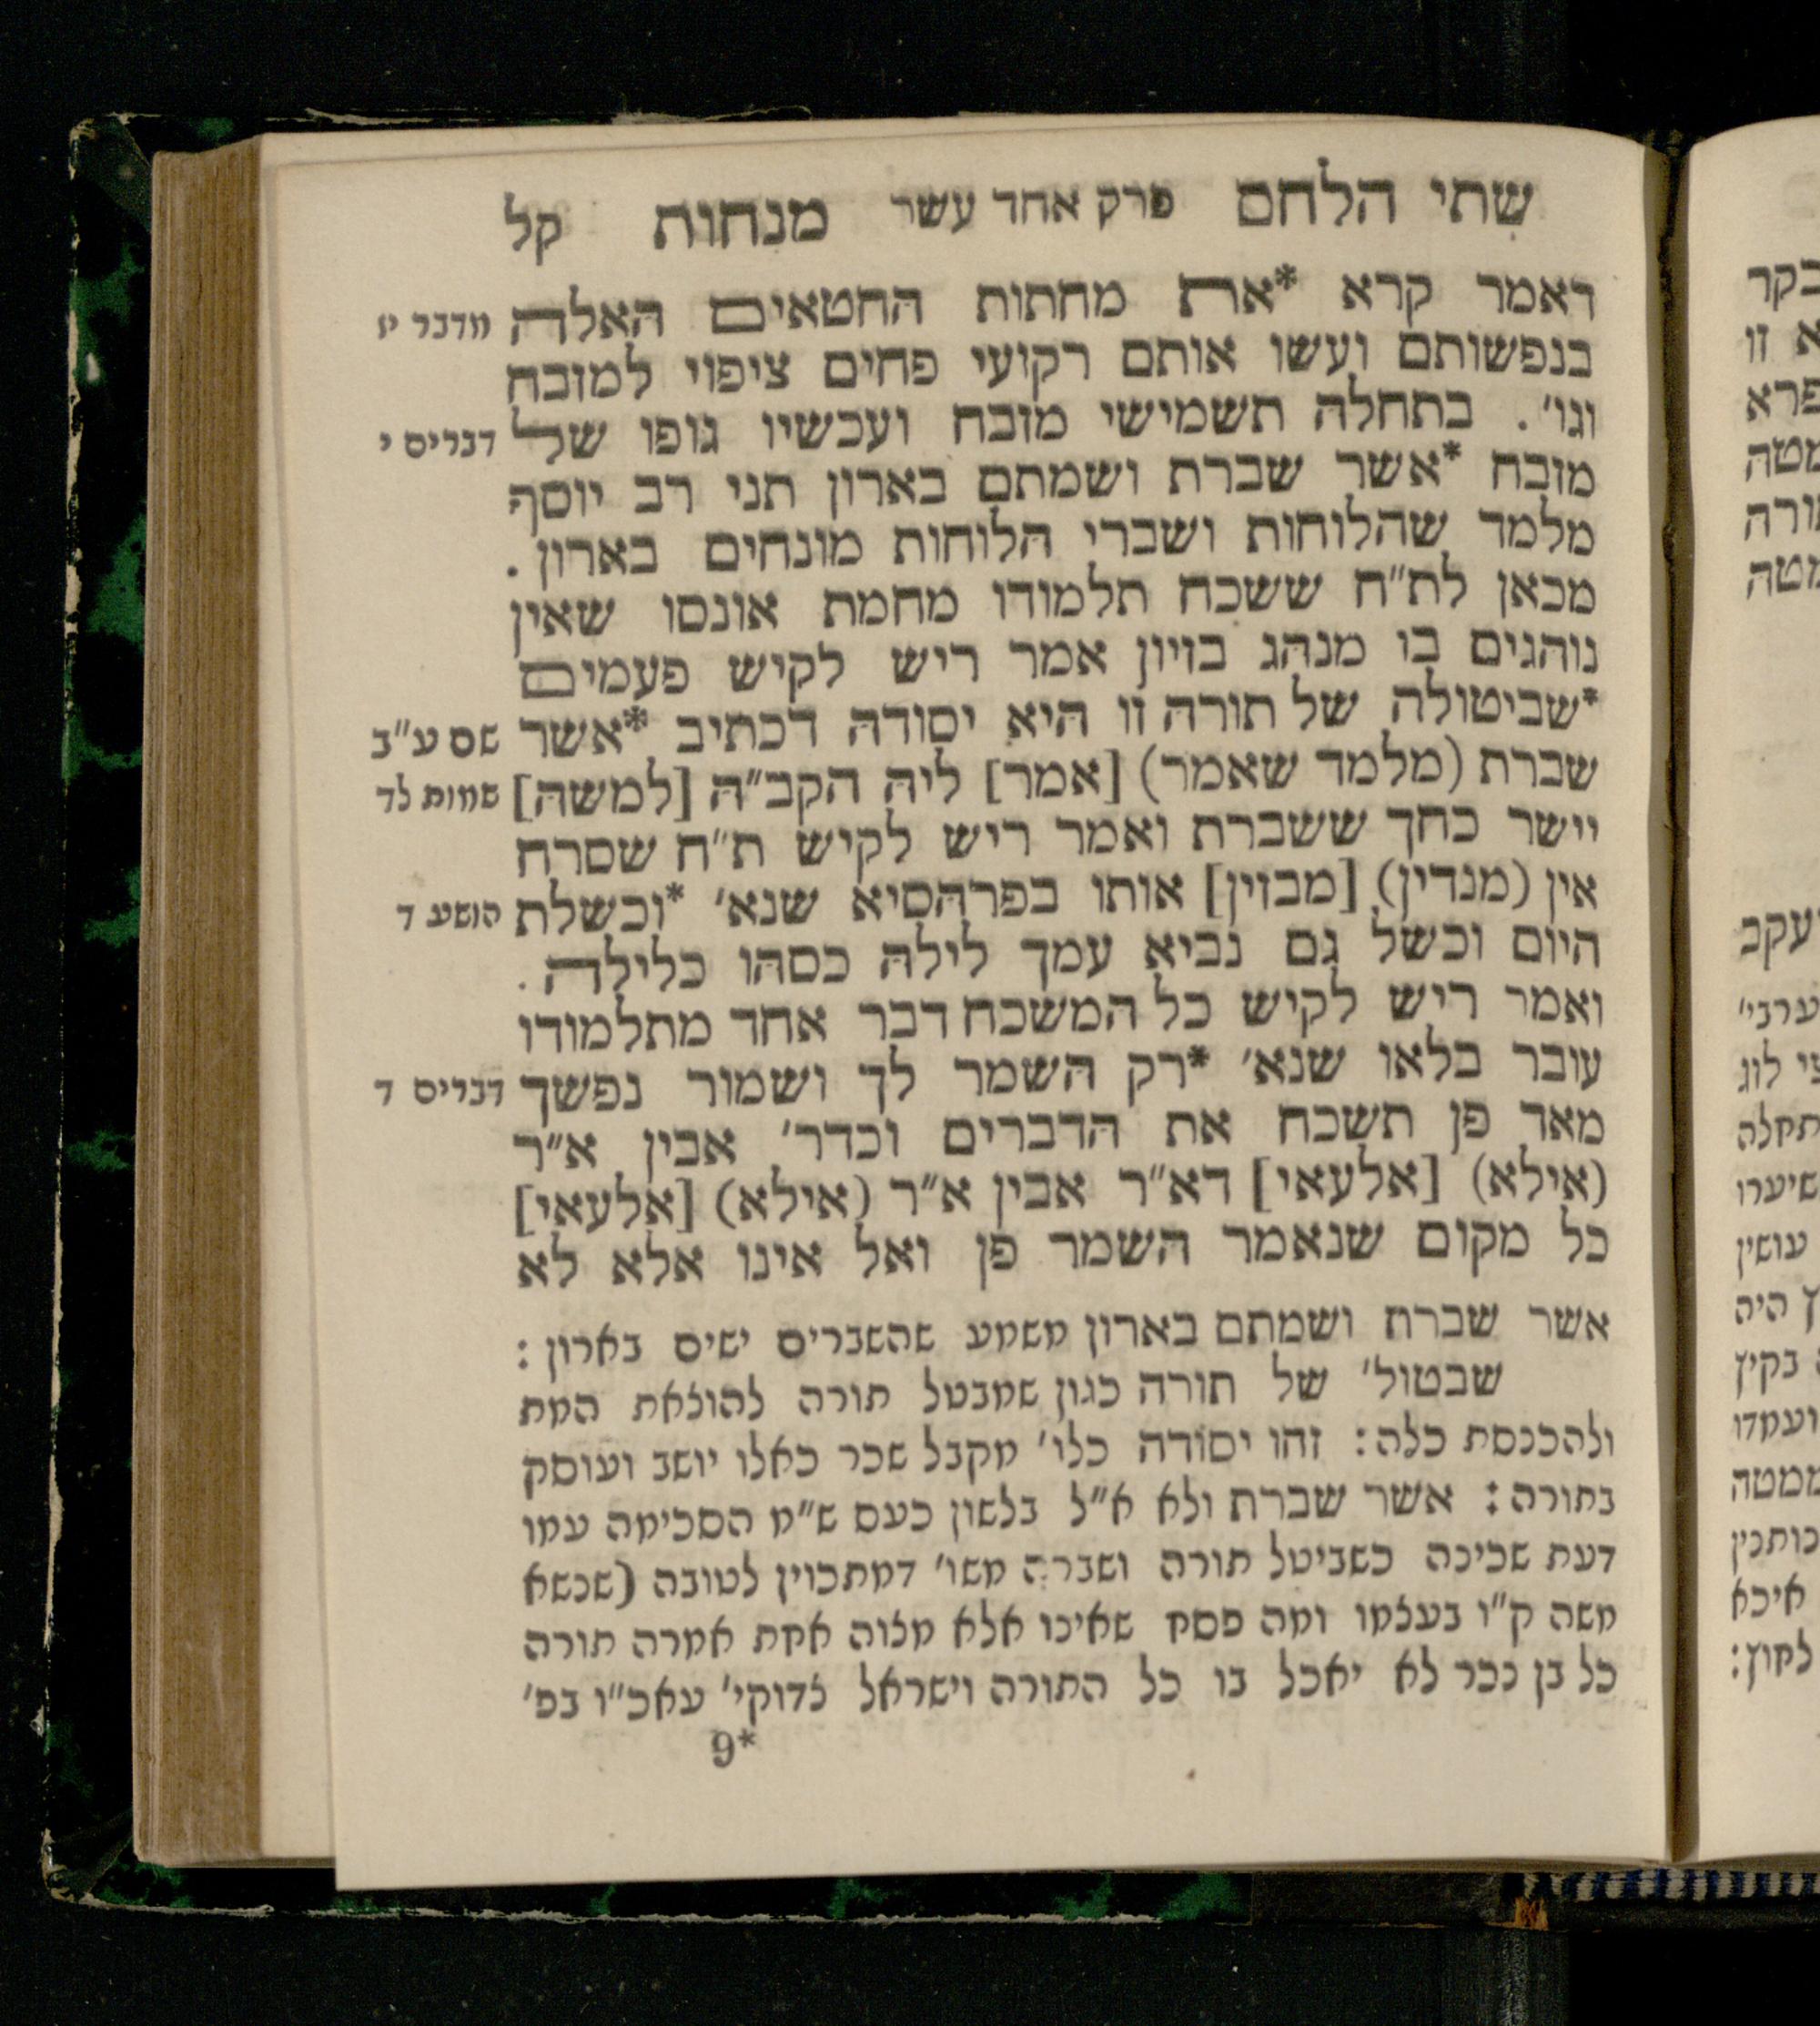 שתי הלחם פרק אחד עשר מנחות קל
דאמר קרא *את מחתות החטאים האלה מדבר יז
בנפשותם ועשו אותם רקועי פחים ציפוי למזבח
וגו׳. בתחלה תשמישי מזבח ועכשיו גופו של דברים י
מזבח *אשר שברת ושמתם בארון תני רב יוסף
מלמד שהלוחות ושברי הלוחות מונחים בארון.
מכאן לת״ח ששכח תלמודו מחמת אונסו שאין
נוהגים בו מנהג בזיון אמר ריש לקיש פעמים
*שביטולה של תורה זו היא יסודה דכתיב *אשר שם ע״ב
שברת (מלמד שאמר) [אמר] ליה הקב״ה [למשה] שמות לד
יישר כחך ששברת ואמר ריש לקיש ת״ח שסרח
אין (מנדין) [מבזין] אותו בפרהסיא שנא׳ *וכשלת הושע ד
היום וכשל גם נביא עמך לילה כסהו כלילה.
ואמר ריש לקיש כל המשכח דבר אחד מתלמודו
עובר בלאו שנא׳ *רק השמר לך ושמור נפשך דברים ד
מאד פן תשכח את הדברים וכדר׳ אבין א״ר
(אילא) [אלעאי] דא״ר אבין א״ר (אילא) [אלעאי]
כל מקום שנאמר השמר פן ואל אינו אלא לא
אשר שברת ושמתם בארון משמע שהשברים ישים בארון:
שבטול׳ של תורה כגון שמבטל תורה להוצאת המת
ולהכנסת כלה: זהו יסודה כלו׳ מקבל שכר כאלו יושב ועוסק
בתורה: אשר שברת ולא א״ל בלשון כעס ש״מ הסכימה עמו
דעת שכינה כשביטל תורה ושברה משו׳ דמתכוין לטובה (שנשא
משה ק״ו בעצמו ומה פסח שאינו אלא מצוה אחת אמרה תורה
כל בן נכר לא יאכל בו כל התורה וישראל צדוקי׳ עאכ״ו בפ׳
9*
בקר
א זו
פרא
מטה
תורה
מטה
יעקב
לוג
שיערו
עושין
היה
בקיץ
ועמדו
איכא
לחוץ: